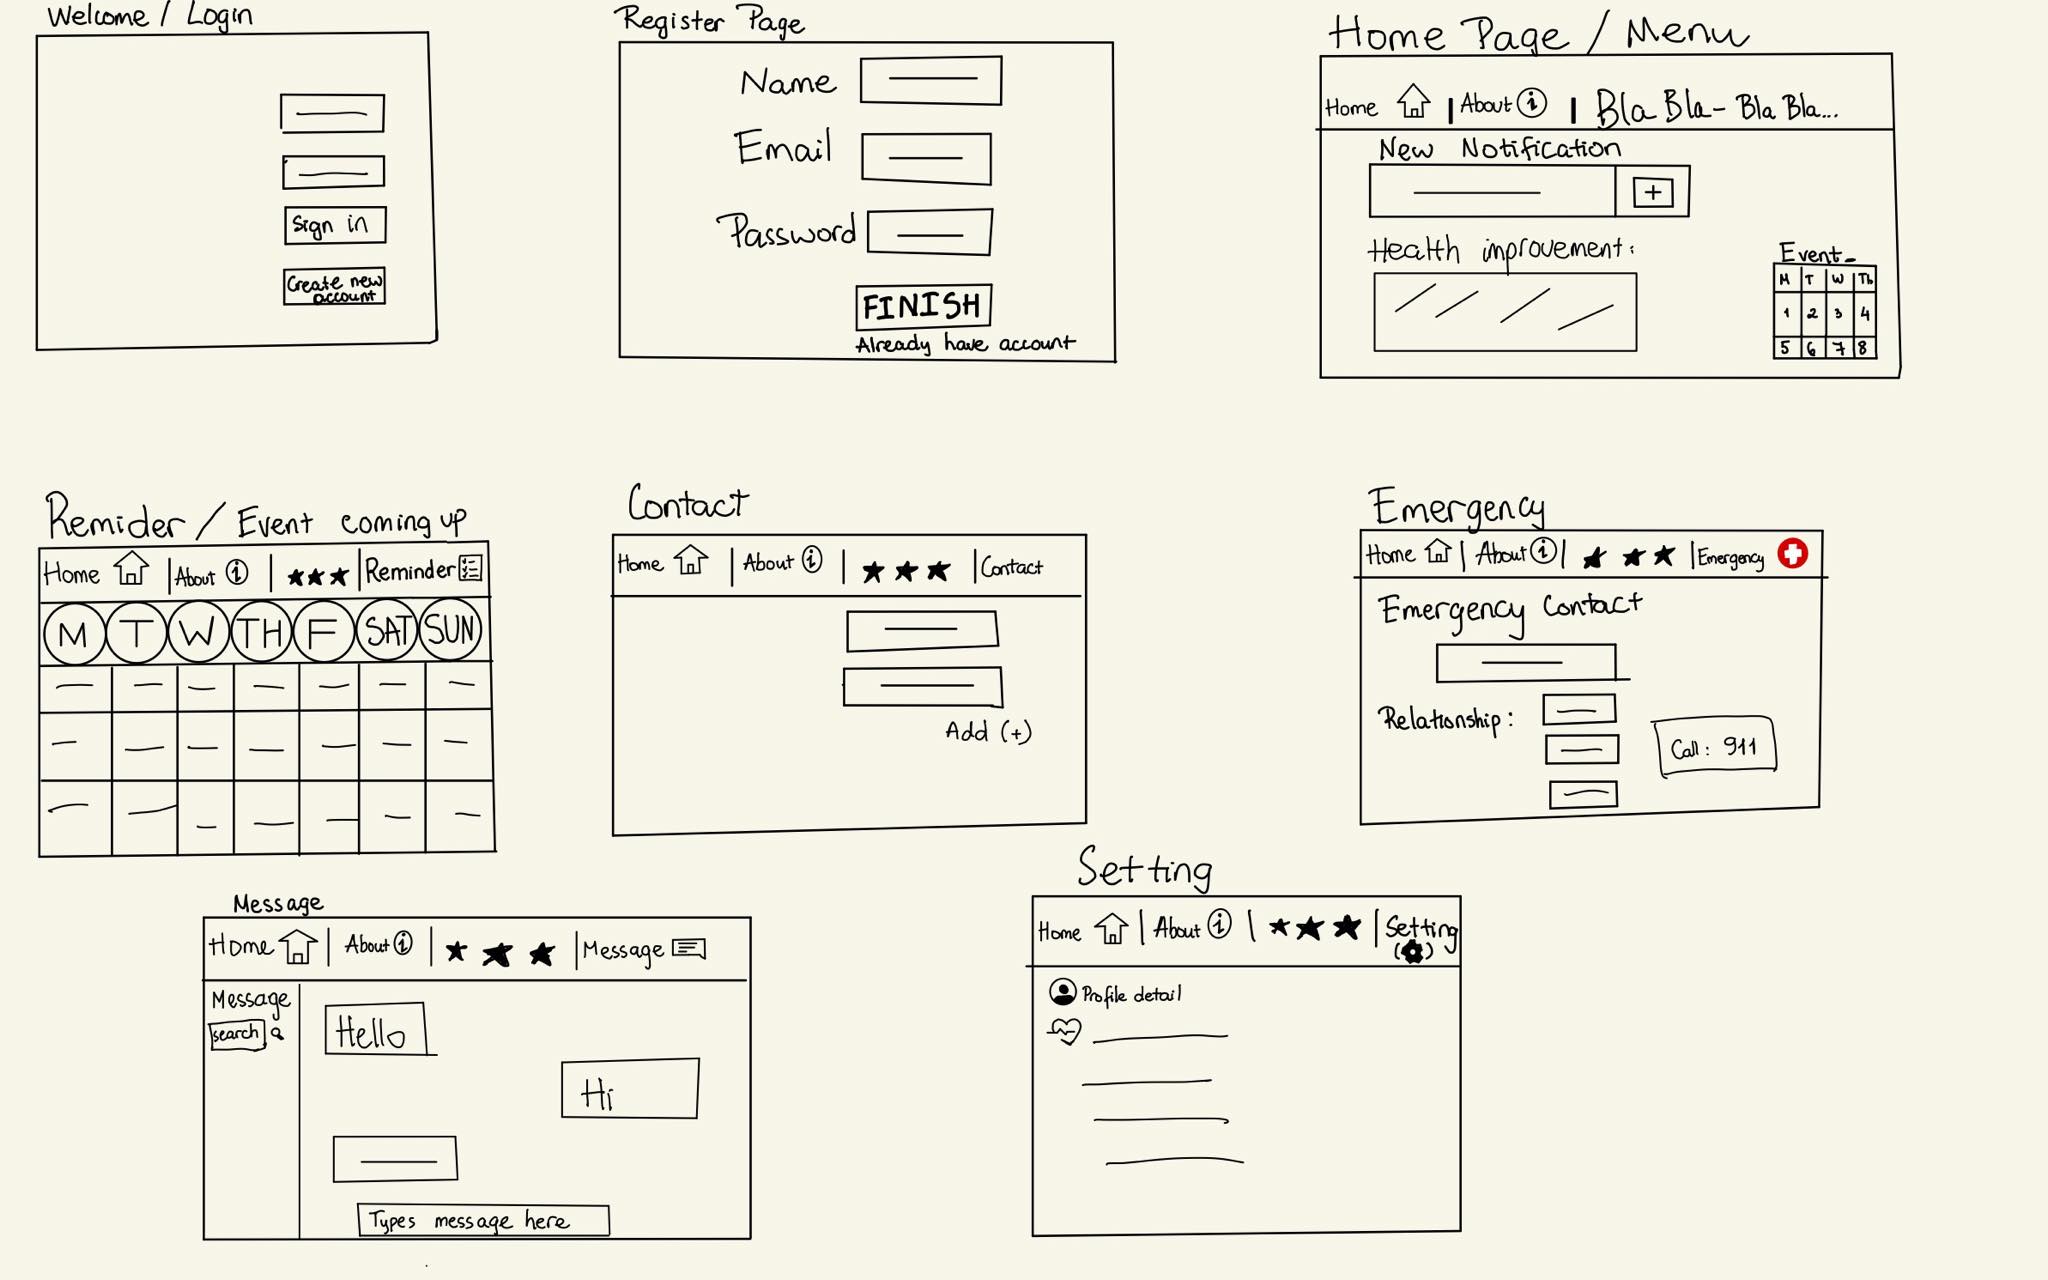 Welcome / Login
Sign in
Create new
account
Register Page
Name
Email
Password
FINISH
Already have account
Home Page / Menu
Home | About i | Bla Bla - Bla Bla...
New Notification
+
Health improvement:
Event
M T W Th
1 2 3 4
5 6 7 8
Remider / Event coming up
Home | About i | ★★★ | Reminder
M T W TH F SAT SUN
Contact
Home | About i | ★ ★ ★ | Contact
Add (+)
Emergency
Home | About i | ★ ★ ★ | Emergency
Emergency Contact
Relationship:
Call: 911
Message
Home | About i | ★ ★ ★ | Message
Message
search
Hello
Hi
Types message here
Setting
Home | About i | ★ ★ ★ | Setting
Profile detail